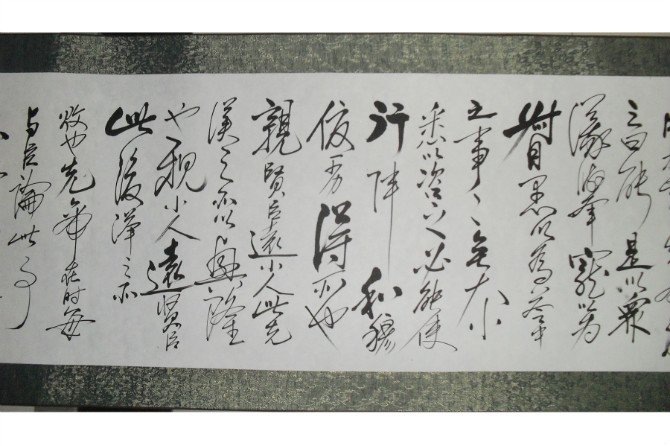 之曰能是以衆
議舉寵以為
督愚以為營中
之事〻無大小
悉以咨之必能使
行陣和穆
優劣得所也
親賢臣遠小人此先
漢之所以興隆
也親小人遠賢臣
此後漢之所
敗也先帝在时每
与臣論此事